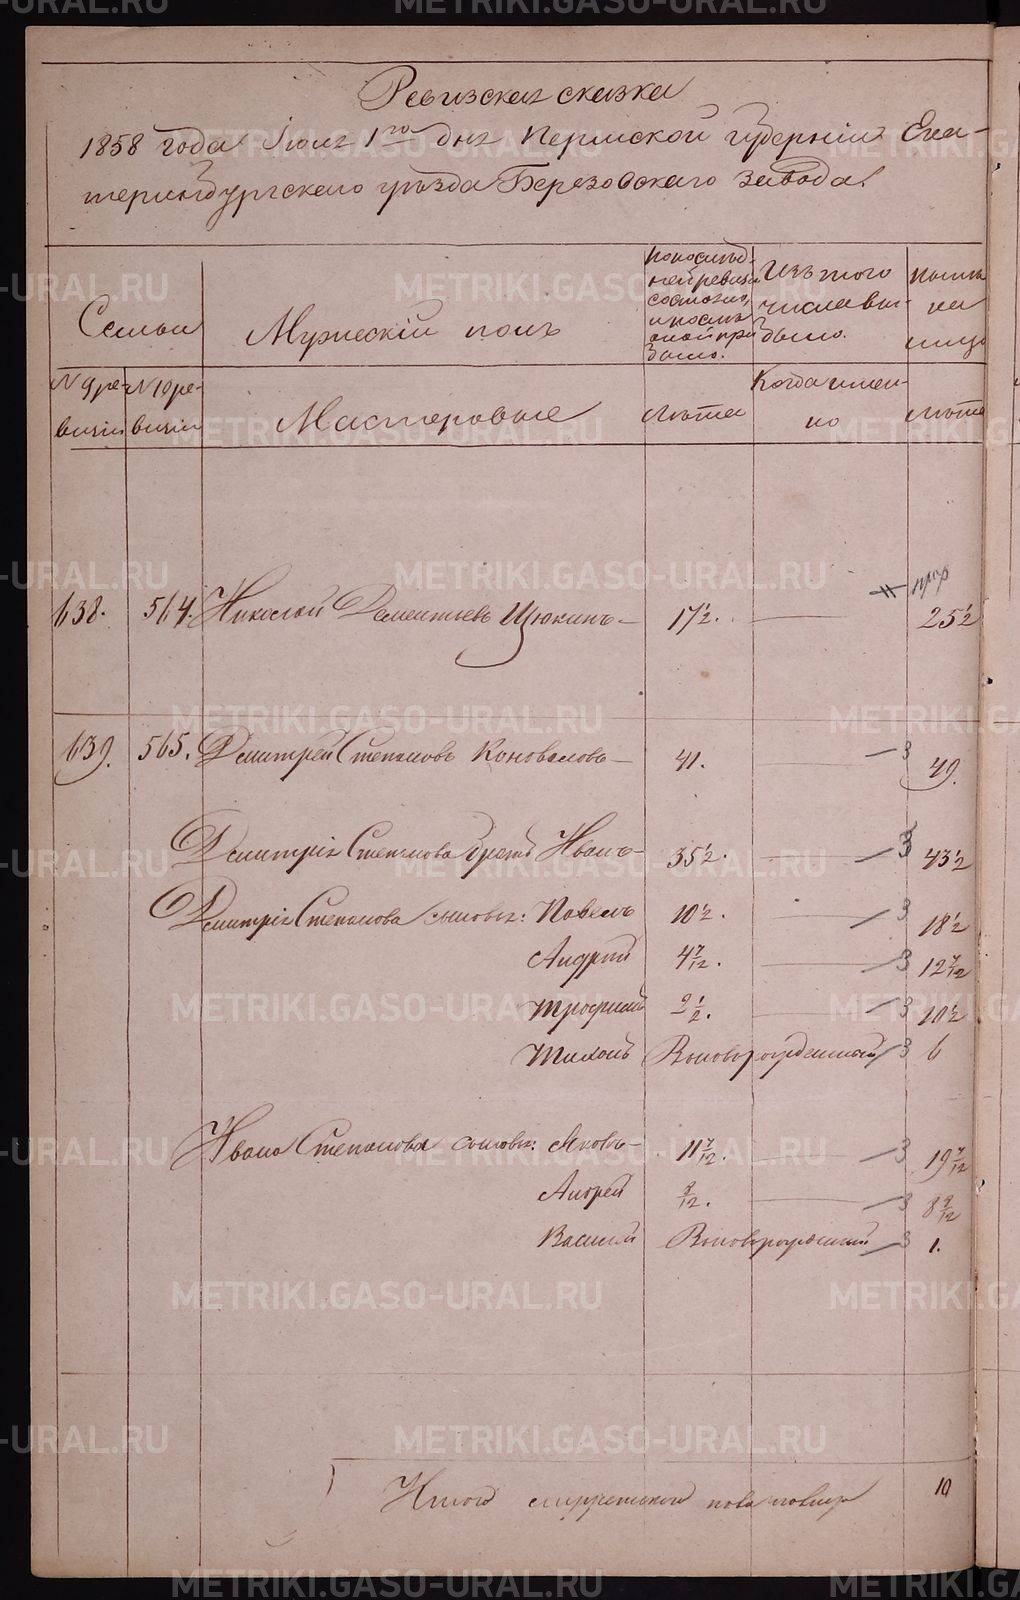 METRIKI.GASO-URAL.RU
Ревизская сказка
1858 года Іюля 1го дня Пермской губерніи Ека-
теринбургскаго уѣзда Березовскаго завода.
Семьи
Мужескій полъ
По послѣд-
ней ревизіи
состояло,
и послѣ
оной при
было.
Изъ того
числа вы-
было.
Нынѣ
на
лицо
№ 9 ре-
визіи
№ 10 ре-
визіи
Мастеровые
Лѣта
Когда имен-
но
Лѣта
638. 564. Николай Дементьевъ Щюкинъ— 17½. 25½
639. 565. Дмитрей Степановъ Коноваловъ— 41. 3 49.
Дмитрія Степанова братъ Иванъ— 35½. 3 43½
Дмитрія Степанова сыновья: Павелъ 10½. 3 18½
Андрей 4 7/12. 3 12 7/12
Трофимъ 2½. 3 10½
Тихонъ Новорожденный 3 6
Ивана Степанова сыновья: Яковъ— 11 7/12. 3 19 7/12
Андрей 8/12. 3 8 8/12
Василій Новорожденный 3 1.
Итого мужескаго пола 10